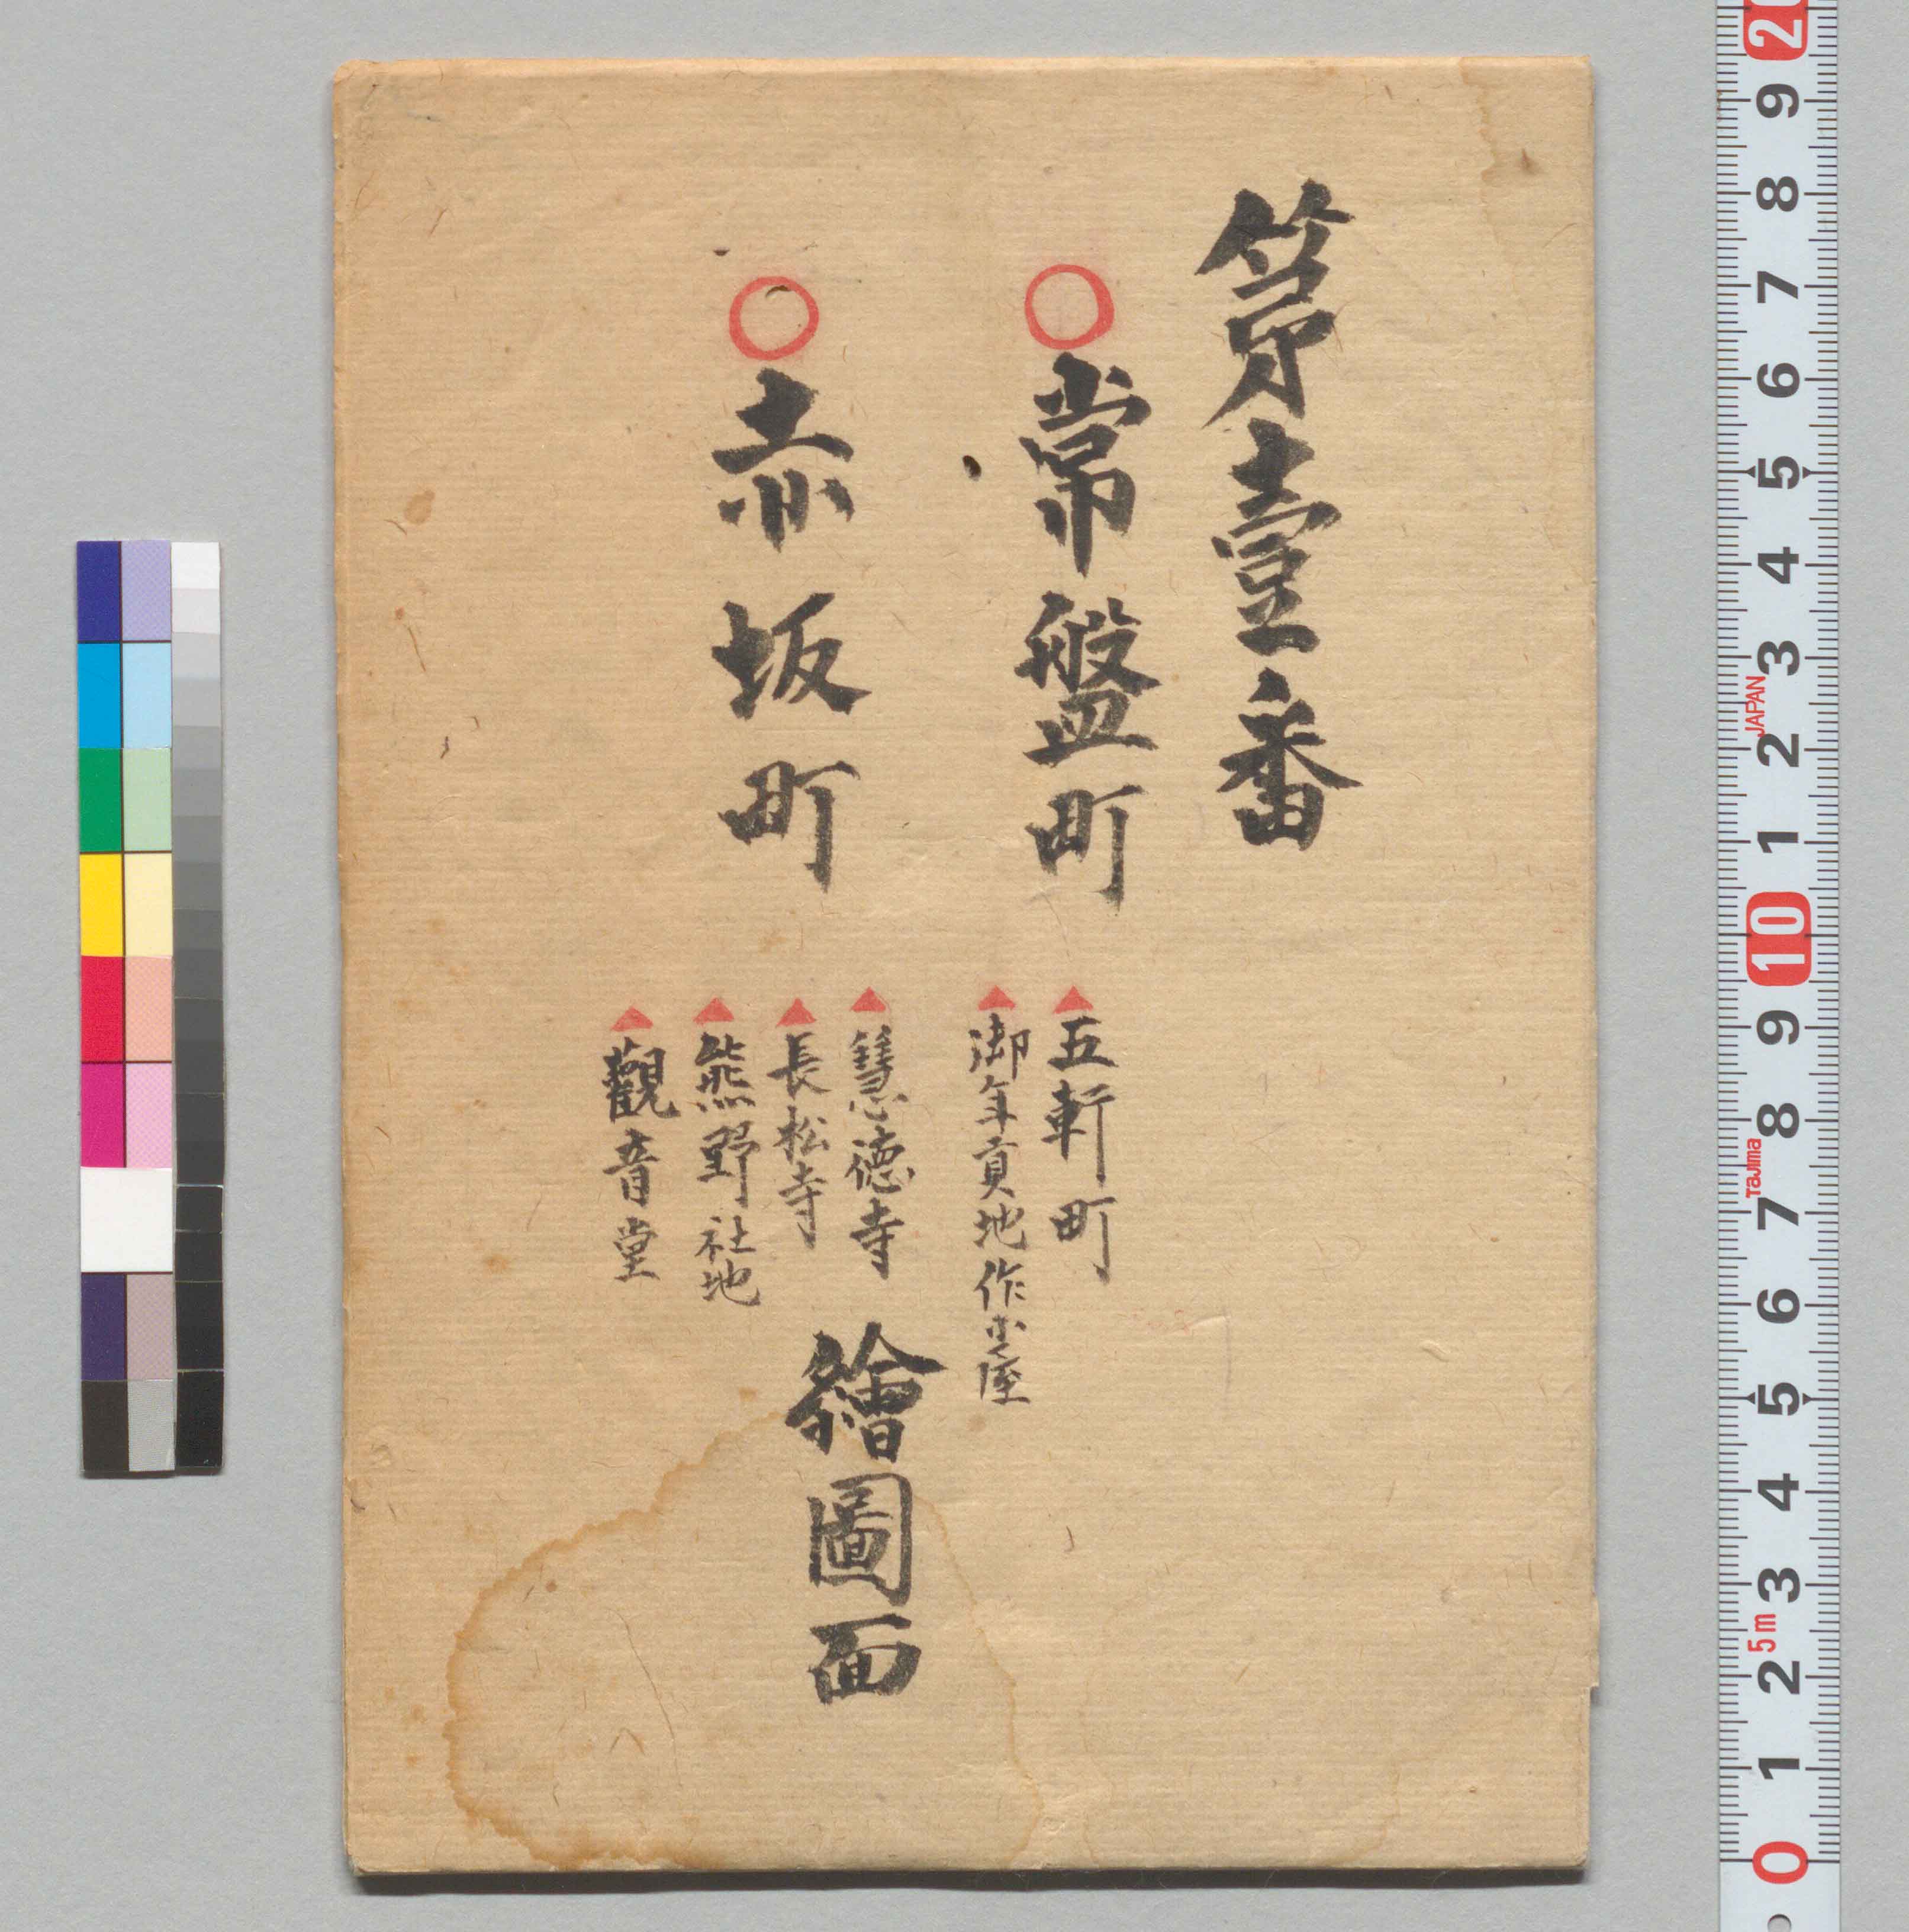 第壹番
○常盤町
▲五軒町
▲御年貢地作小屋
○赤坂町
▲慧德寺
▲長松寺
▲熊野社地
▲觀音堂
繪圖面
2 9 8 7 6 5 4 3 2 1 10 9 8 7 6 5 4 3 2 1 0
JAPAN
Tajima
5m